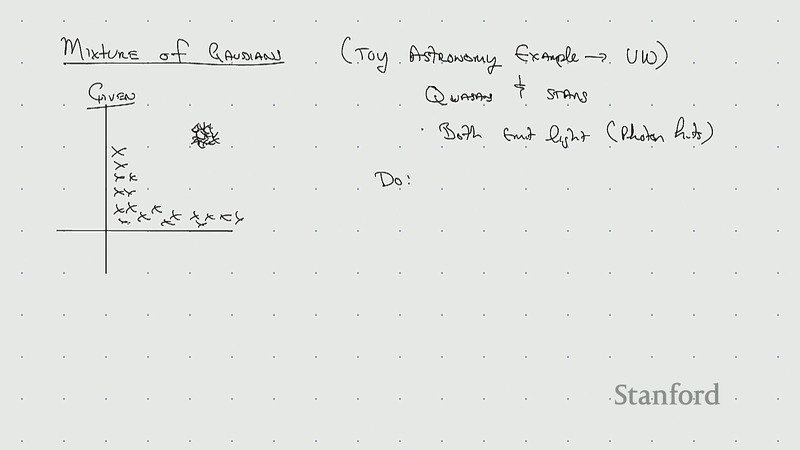 Mixture of Gausians
(Toy Astronomy Example → UW)
Given
Quasars & stars
· Both emit light (Photon hits)
Do:
Stanford